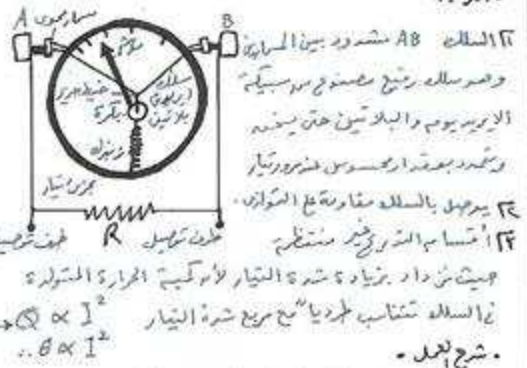 A
B
مسمار محوى
مؤشر
سلك
ايريديوم
بلاتين
خيط حرير
بكرة
زنبرك
مجزئ تيار
R
طرف توصيل
طرف توصيل
١] السلك AB مشدود بين المسمارين
وهو سلك رفيع مصنوع من سبيكة
الايريديوم والبلاتين حتى يسخن
ويتمدد بمقدار محسوس عند مرور تيار
٢] يوصل بالسلك مقاومة على التوازى.
٣] أقسام التدريج غير منتظمة
حيث تزداد بزيادة شدة التيار لأن كمية الحرارة المتولدة
فى السلك تتناسب طرديا مع مربع شدة التيار
Q ∝ I²
∴ θ ∝ I²
• شرح العمل •